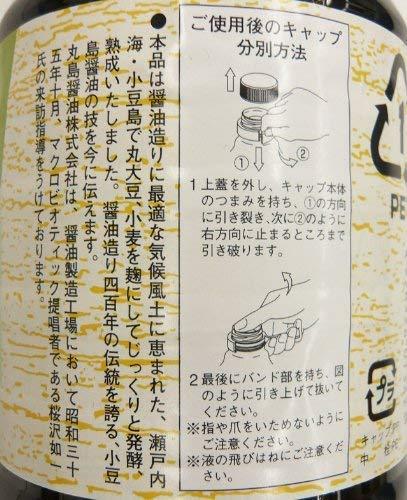 ご使用後のキャップ
分別方法
①
②
1 上蓋を外し、キャップ本体
のつまみを持ち、①の方向
に引き裂き、次に②のように
右方向に止まるところまで
引き破ります。
2 最後にバンド部を持ち、図
のように引き上げて抜いて
ください。
※指や爪をいためないように
ご注意ください。
※液の飛びはねにご注意くだ
さい。
●本品は醤油造りに最適な気候風土に恵まれた、瀬戸内
海・小豆島で丸大豆・小麦を麹にしてじっくりと発酵、
熟成いたしました。醤油造り四百年の伝統を誇る、小豆
島醤油の技を今に伝えます。
丸島醤油株式会社は、醤油製造工場において昭和三十
五年十月、マクロビオティック提唱者である桜沢如一
氏の来訪指導をうけております。
1
PE
プラ
キャップ
中